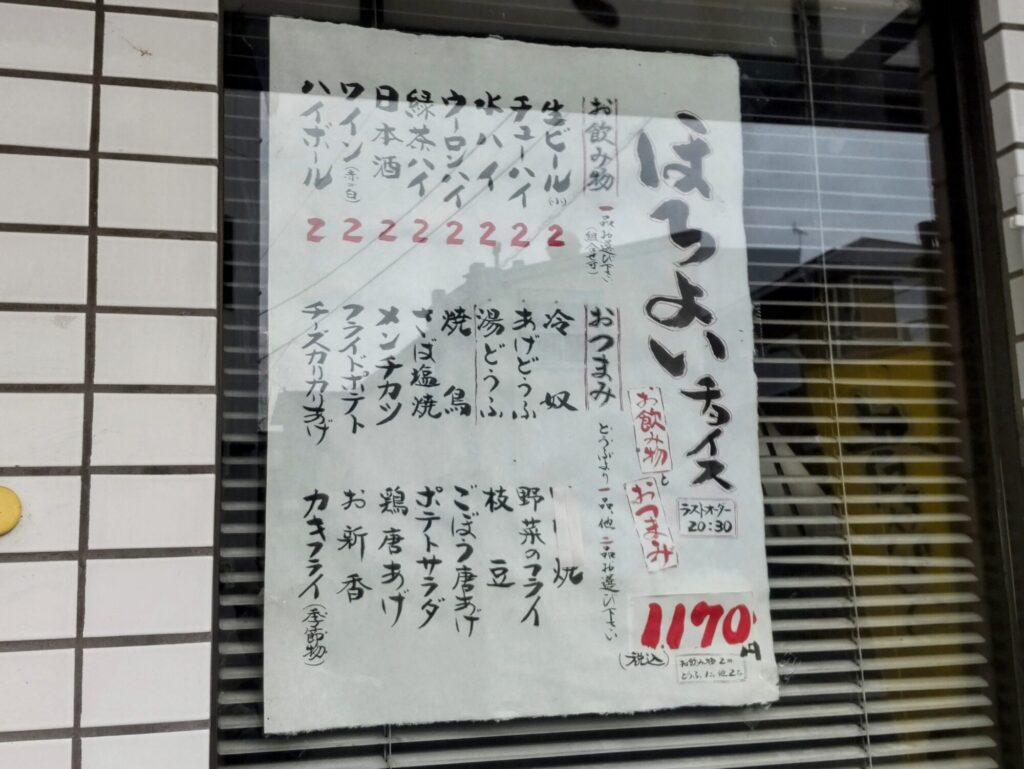 ほろよいチョイス
ラストオーダー
20:30
お飲み物と
おつまみ
1170円
(税込)
お飲み物
一品お選び下さい
(組合せ可)
生ビール(小) 2
チューハイ 2
水ハイ 2
ウーロンハイ 2
緑茶ハイ 2
日本酒 2
ワイン(赤・白) 2
ハイボール 2
おつまみ
とうふより一品他二品お選び下さい
冷奴
あげどうふ
湯どうふ
焼鳥
さば塩焼
メンチカツ
フライドポテト
チーズカリカリあげ
焼
野菜のフライ
枝豆
ごぼう唐あげ
ポテトサラダ
鶏唐あげ
お新香
カキフライ(季節物)